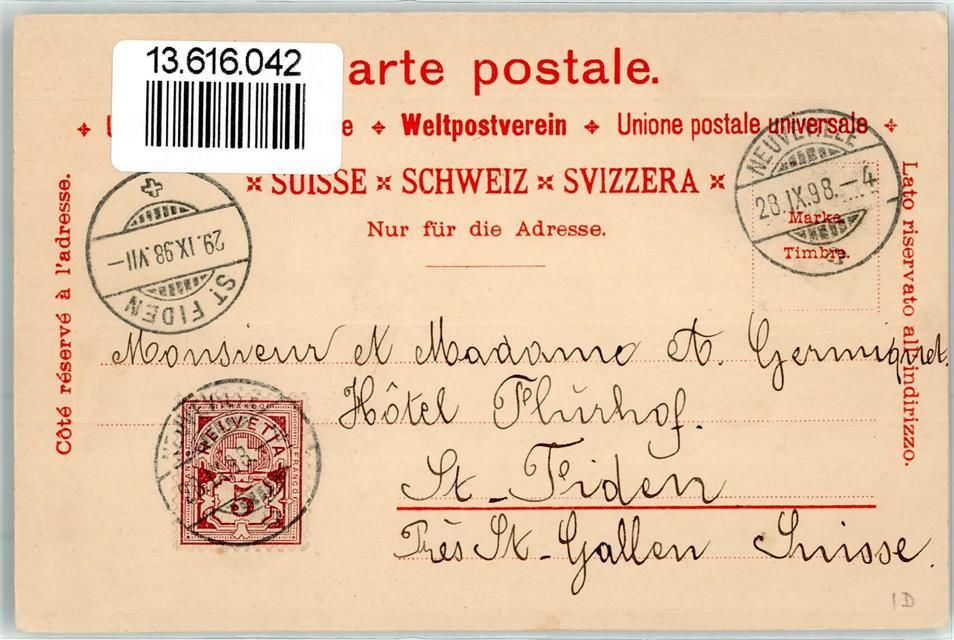 13.616.042
arte postale.
Weltpostverein Unione postale universale
SUISSE SCHWEIZ SVIZZERA
Nur für die Adresse.
Côté réservé à l'adresse.
Lato riservato all'indirizzo.
Marke.
Timbre.
NEUVEVILLE
28.IX.98.–4
29.IX.98.VII–
ST. FIDEN
Monsieur & Madame A. Germiquet.
Hôtel Flurhof.
St-Fiden
Près St-Gallen Suisse.
HELVETIA
FRANCO
5
NEUVEVILLE
1D